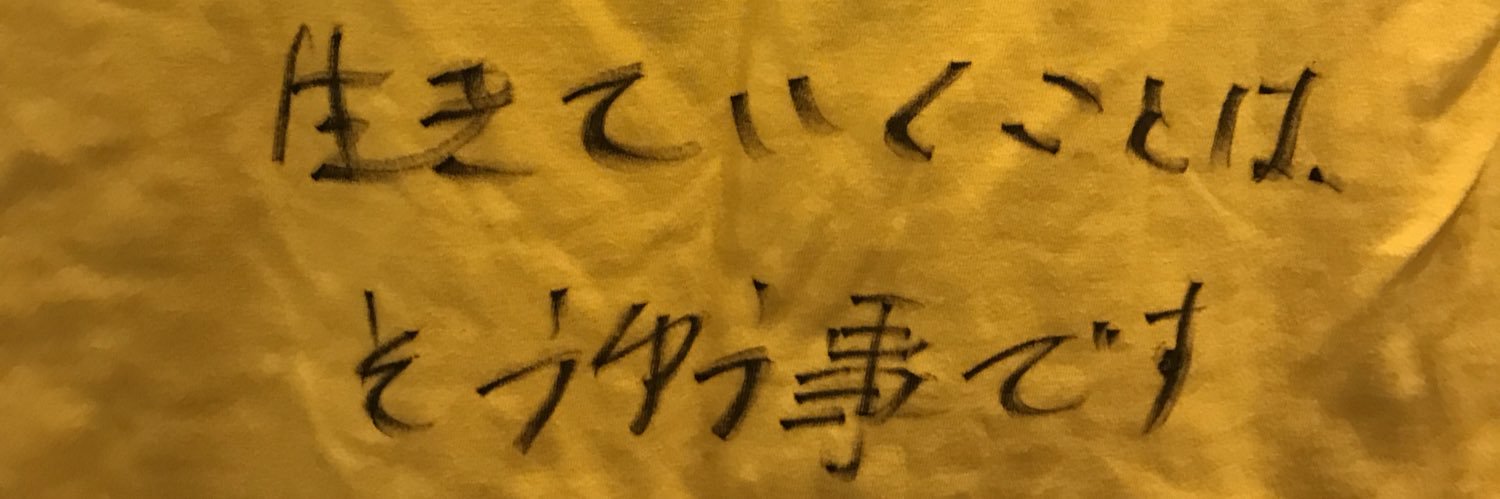 生きていくことは、
そうゆう事です